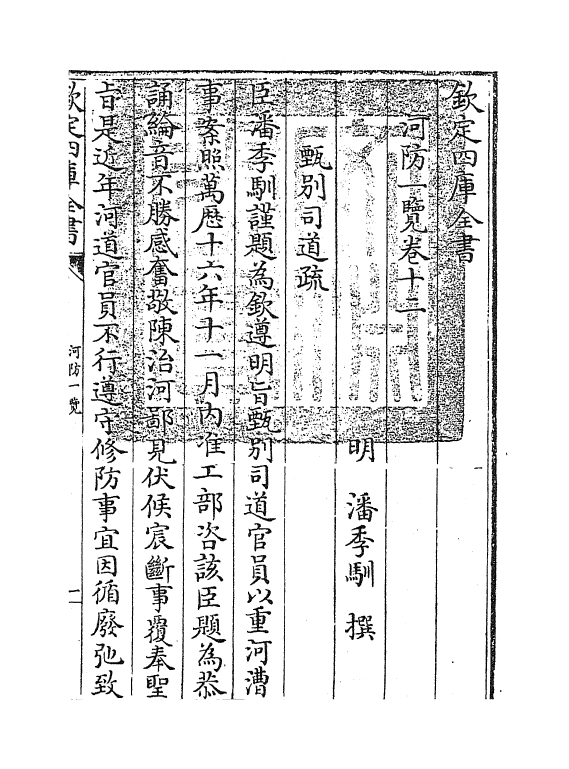 欽定四庫全書
河防一覽卷十二
明 潘季馴 撰
甄别司道疏
臣潘季馴謹題為欽遵明旨甄别司道官員以重河漕
事案照萬厯十六年十一月内准工部咨該臣題為恭
誦綸音不勝感奮敬陳治河鄙見伏候宸斷事覆奉聖
旨是近年河道官員不行遵守修防事宜因循廢弛致
欽定四庫全書
河防一覽
一